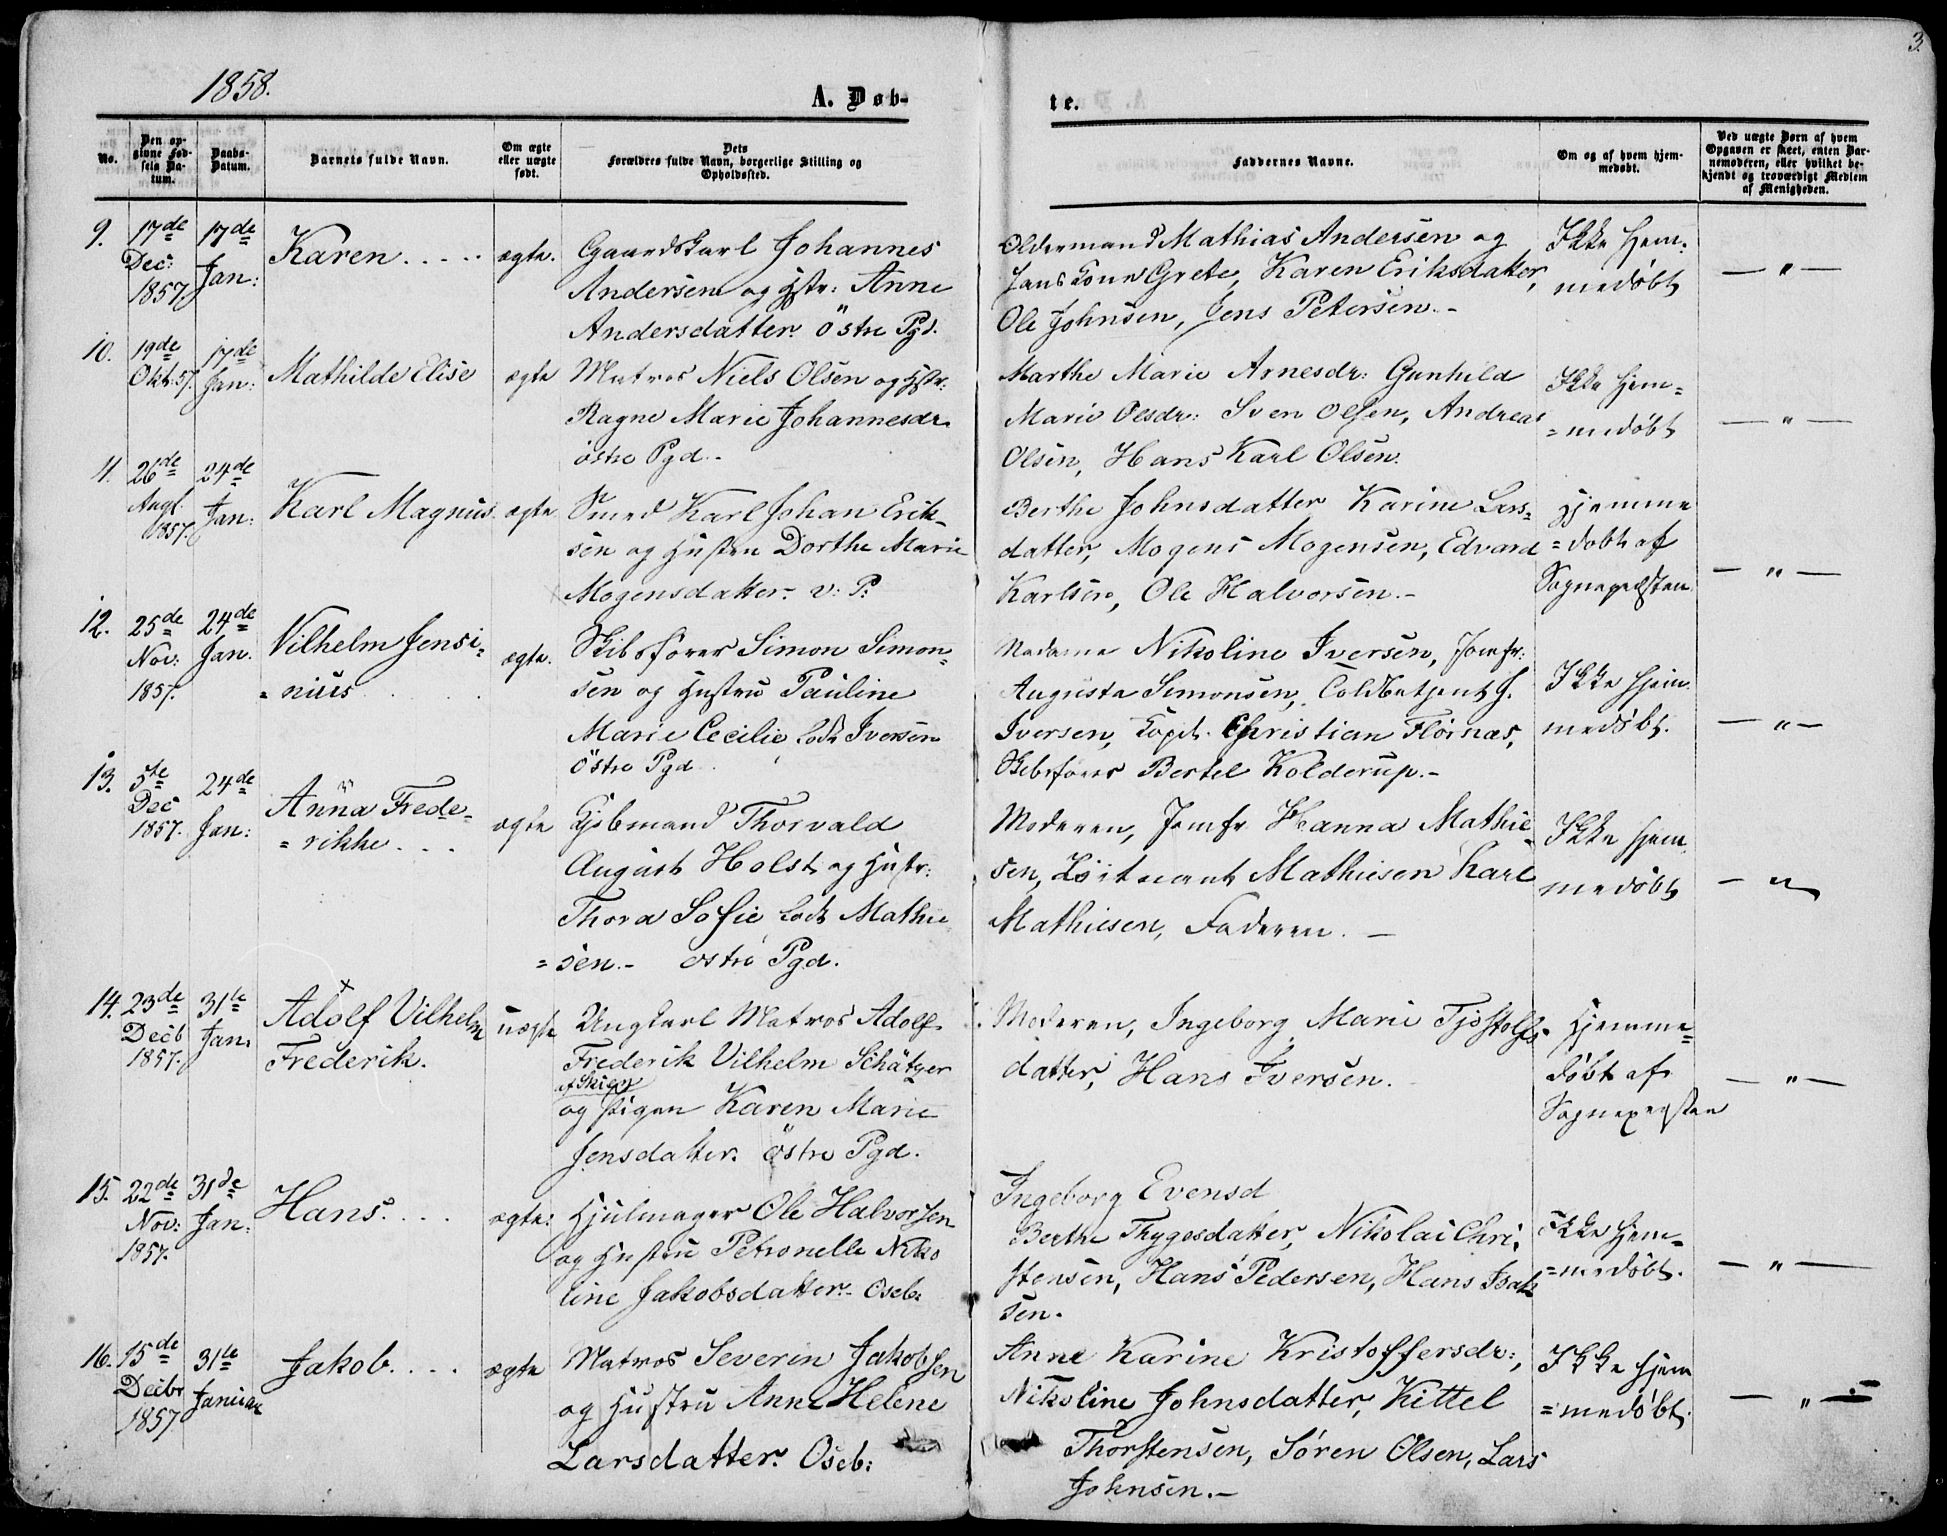 1858.
3.
A. Døb-
te.
No.
Den op-
givne Fød-
sels Da-
tum.
Daabs-
Datum.
Barnets fulde Navn.
Om ægte
eller uægte
født.
Dets
Forældres fulde Navn, borgerlige Stilling og
Opholdssted.
Faddernes Navne.
Om og af hvem hjem-
medøbt.
Ved uægte Børn af hvem
Opgaven er skeet, enten Bar-
nemoderen, eller hvilket be-
kjendt og troværdigt Medlem
af Menigheden.
9.
17de
Dec:
1857.
17de
Jan:
Karen. . . . .
ægte.
Gaardskarl Johannes
Andersen og Hstr: Anne
Andersdatter. Östre Pgd.
Oldermand Mathias Andersen og
hans Kone Grete, Karen Eriksdatter,
Ole Johnsen, Jens Petersen.-
Ikke hjem-
medøbt
— " —
10.
19de
Okt: 57.
17de
Jan:
Mathilde Elise
ægte
Matros Niels Olsen og Hstr:
Ragne Marie Johannesdr.
östre Pgd.-
Marthe Marie Arnesdr: Gunhild
Marie Olsdr: Sven Olsen, Andreas
Olsen, Hans Karl Olsen.
Ikke hjem=
=medøbt
— " —
11.
26de
Augt.
1857.
24de
Jan:
Karl Magnus.
ægte
Smed Karl Johan Erik-
sen og Hustru Dorthe Marie
Mogensdatter.- v: P:
Berthe Johnsdatter Karine Lars=
datter, Mogens Mogensen, Edvard
Karlsen, Ole Halvorsen.-
Hjemme
=døbt af
Sognepresten
— " —
12.
25de
Nov:
1857.
24de
Jan.
Vilhelm Jensi=
=nius . . .
ægte.
Skibsfører Simon Simon=
sen og Hustru Pauline
Marie Cecilie, født Iversen
Östre Pgd.
Madame Nikoline Iversen, Jomfr:
Augusta Simonsen, Toldbetjent J.
Iversen, Kapt. Christian Fløinæs,
Skibsfører Bertel Kolderup.-
Ikke hjem
medøbt.
— " —
13.
5te
Dec
1857.
24de
Jan:
Anna Frede=
=rikke. . .
ægte
Kjøbmand Thorvald
August Holst og Hustr:
Thora Sofie, født Mathie
=sen.- østre Pgd.
Moderen, Jomfr Hanna Mathie
sen, Löitnant Mathiesen Karl
Mathiesen, Faderen. —
Ikke hjem
medøbt
— " —
14.
23de
Decb
1857.
31te
Jan.
Adolf Vilhelm
Frederik.
uægte
Ungkarl Matros Adolf
Frederik Vilhelm Schätzer
og Pigen Karen Marie
Jensdatter. östre Pgd.
Moderen, Ingeborg Marie Tjostolfs-
datter, Hans Iversen.
Hjemme=
døbt af
Sognepresten
— " —
15.
22de
Nov:
1857.
31de
Jan:
Hans. . . .
ægte:
Hjulmager Ole Halvorsen
og Hustru Petronelle Niko
line Jakobsdatter.- Oseb:
Ingeborg Evensd
Berthe Thygesdatter, Nikolai Chri-
stensen, Hans Pedersen, Hans Isak
sen.
Ikke hjem=
=medøbt.
— " —
16.
15de
Decbr
1857.
31te
Januar
Jakob. . . .
ægte
Matros Severin Jakobsen
og Hustru Anne Helene
Larsdatter. Oseb:
Anne Karine Kristoffersdr:,
Nikoline Johnsdatter, Kittel
Thorstensen, Søren Olsen, Lars
Johnsen.-
Ikke hjem
=medøbt.
— " —